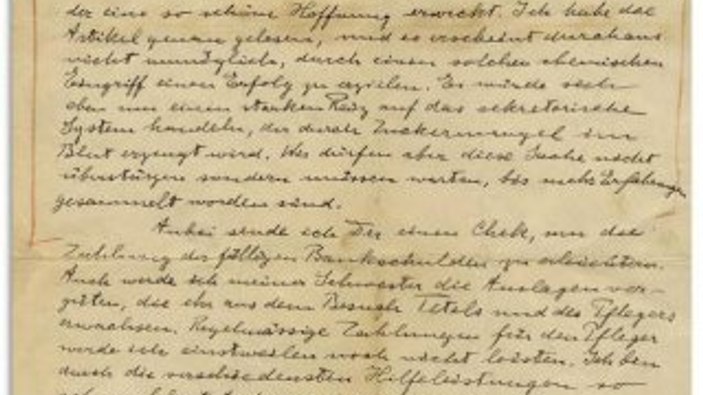 der eine so schöne Hoffnung erweckt. Ich habe das
Artikel genau gelesen, und es erscheint durchaus
nicht unmöglich, durch einen solchen chemischen
Eingriff einen Erfolg zu erzielen. Es würde sich
eben um einen starken Reiz auf das sekretorische
System handeln, der durch Zuckermangel im
Blut erzeugt wird. Wir dürfen aber diese Sache nicht
überstürzen sondern müssen warten, bis mehr Erfahrungen
gesammelt worden sind.
Anbei sende ich Dir einen Chek, um die
Zahlung der fälligen Bankschulden zu erleichtern.
Auch werde ich meiner Schwester die Auslagen ver-
güten, die ihr aus dem Besuch Tetels und des Pflegers
erwachsen. Regelmässige Zahlungen für den Pfleger
werde ich einstweilen noch nicht leisten. Ich bin
durch die verschiedensten Hilfeleistungen so